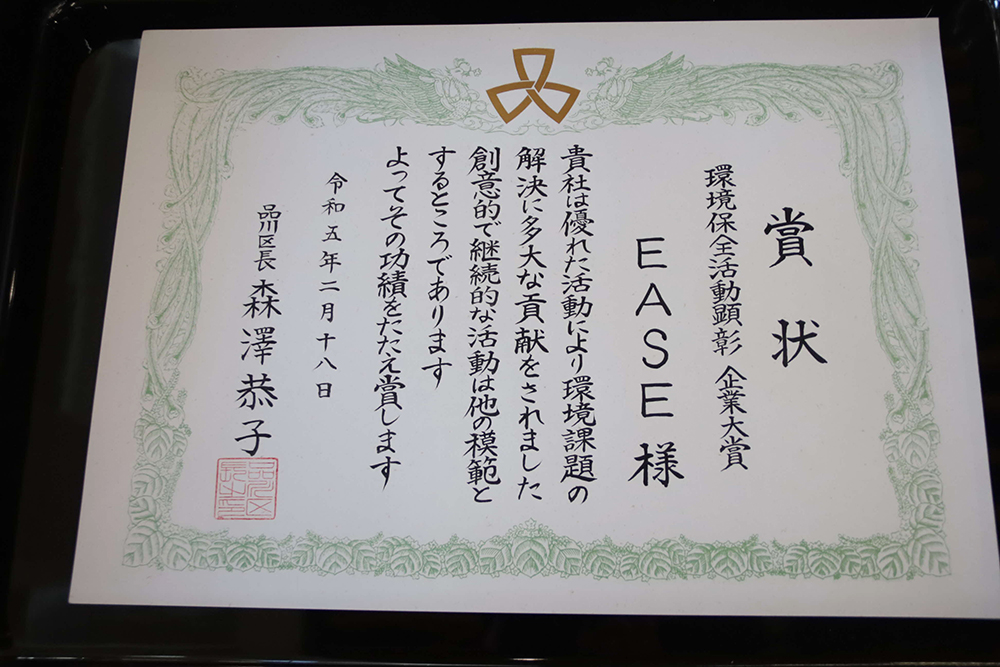 賞状
環境保全活動顕彰 企業大賞
EASE様
貴社は優れた活動により環境課題の
解決に多大な貢献をされました
創意的で継続的な活動は他の模範と
するところであります
よってその功績をたたえ賞します
令和五年二月十八日
品川区長 森澤恭子